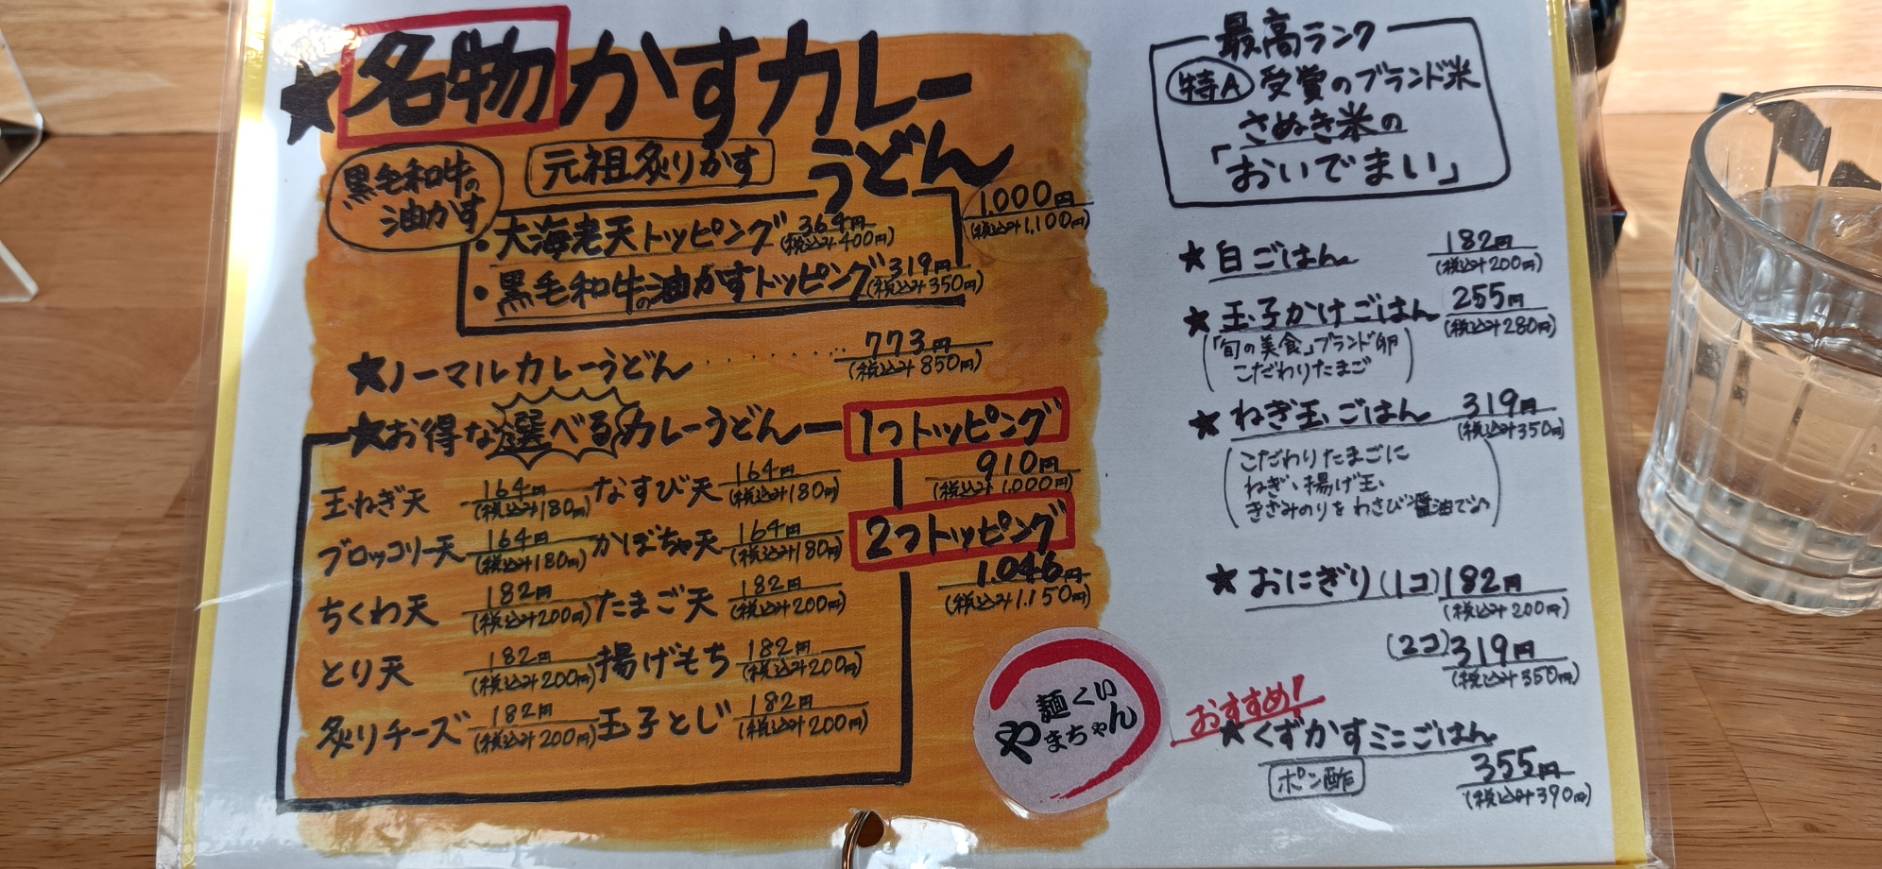 ★名物かすカレー
うどん
黒毛和牛の
油かす
元祖炙りかす
1,000円
(税込み1,100円)
・大海老天トッピング 364円
(税込み400円)
・黒毛和牛の油かすトッピング 319円
(税込み350円)
★ノーマルカレーうどん ‥‥‥‥ 773円
(税込み850円)
★お得な選べるカレーうどん
1つトッピング
910円
(税込み1,000円)
2つトッピング
1,046円
(税込み1,150円)
玉ねぎ天 164円 (税込み180円) なすび天 164円 (税込み180円)
ブロッコリー天 164円 (税込み180円) かぼちゃ天 164円 (税込み180円)
ちくわ天 182円 (税込み200円) たまご天 182円 (税込み200円)
とり天 182円 (税込み200円) 揚げもち 182円 (税込み200円)
炙りチーズ 182円 (税込み200円) 玉子とじ 182円 (税込み200円)
麺くい
やまちゃん
最高ランク
特A 受賞のブランド米
さぬき米の
「おいでまい」
★白ごはん 182円
(税込み200円)
★玉子かけごはん 255円
(税込み280円)
(「旬の美食」ブランド卵
こだわりたまご)
★ねぎ玉ごはん 319円
(税込み350円)
(こだわりたまごに
ねぎ、揚げ玉、
きざみのりをわさび醤油で♪)
★おにぎり(1コ) 182円
(税込み200円)
(2コ) 319円
(税込み350円)
おすすめ!
★くずかすミニごはん
ポン酢
355円
(税込み390円)